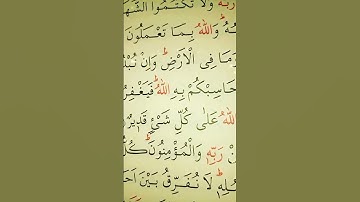 رَبَّهُ وَلَا تَكْتُمُوا الشَّهَا
ـهُ وَاللهُ بِمَا تَعْمَلُونَ
وَمَا فِى الْاَرْضِ وَاِنْ تُبْدُ
حَاسِبْكُمْ بِهِ اللهُ فَيَغْفِرُ
اللهُ عَلٰى كُلِّ شَيْءٍ قَدِيرٌ
نْ رَبِّهٖ وَالْمُؤْمِنُونَ كُلٌّ
سُلِهٖ لَا نُفَرِّقُ بَيْنَ اَحَدٍ